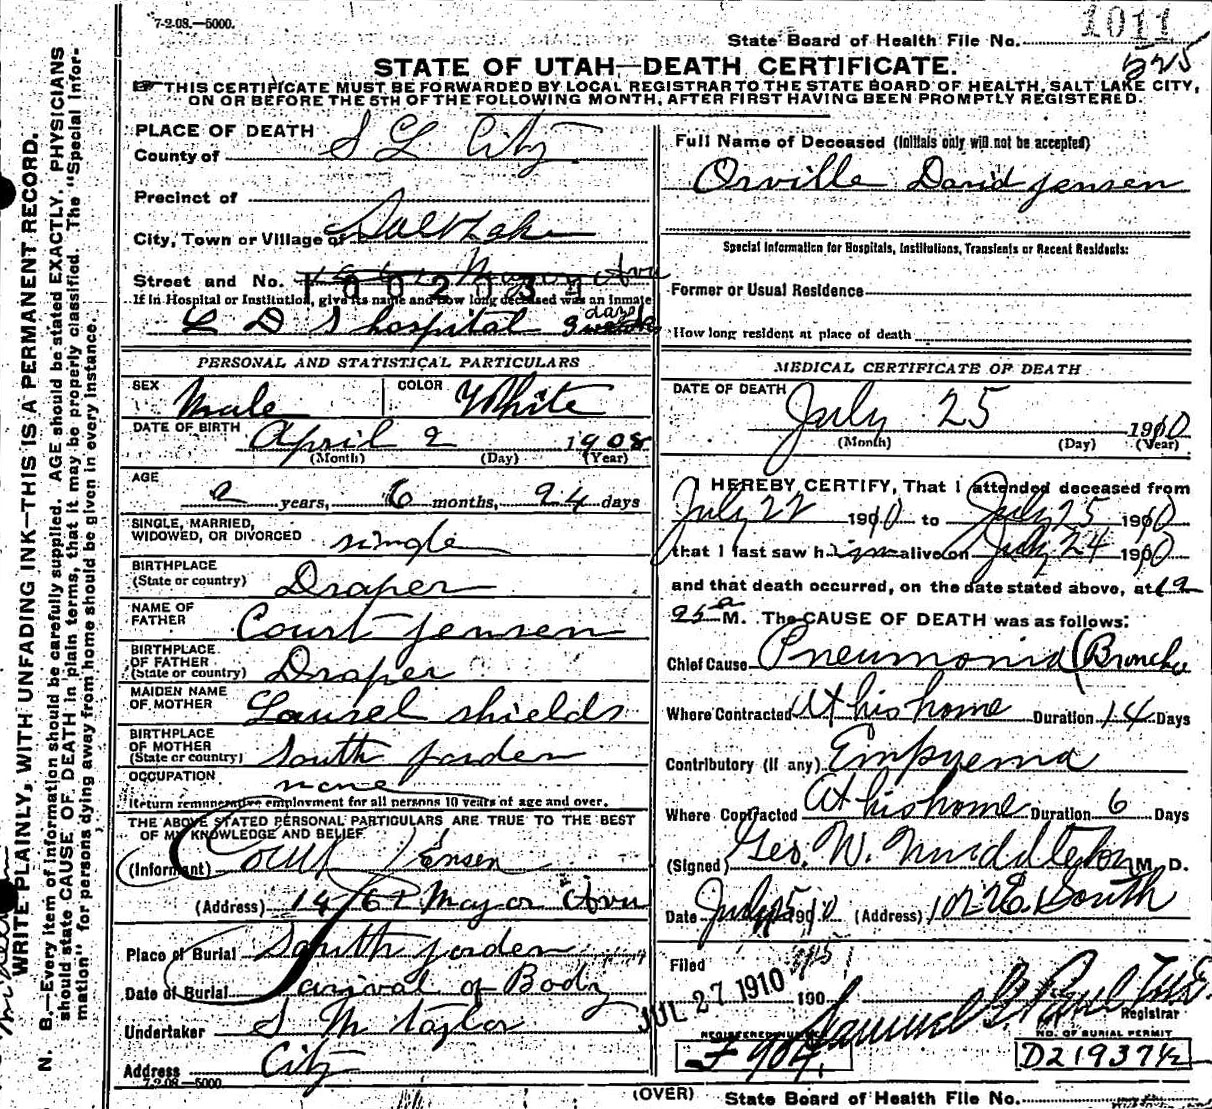 7-2-08.—5000.
State Board of Health File No. 1011
525
STATE OF UTAH—DEATH CERTIFICATE.
☞ THIS CERTIFICATE MUST BE FORWARDED BY LOCAL REGISTRAR TO THE STATE BOARD OF HEALTH, SALT LAKE CITY,
ON OR BEFORE THE 5TH OF THE FOLLOWING MONTH, AFTER FIRST HAVING BEEN PROMPTLY REGISTERED.
PLACE OF DEATH
County of S L City
Precinct of
City, Town or Village of Salt Lake
Street and No. Ave
1002037
If in Hospital or Institution, give its name and how long deceased was an inmate
L D S hospital 3 days
PERSONAL AND STATISTICAL PARTICULARS
SEX Male COLOR White
DATE OF BIRTH April 2 1908
(Month) (Day) (Year)
AGE
2 years, 6 months, 24 days
SINGLE, MARRIED,
WIDOWED, OR DIVORCED single
BIRTHPLACE
(State or country) Draper
NAME OF
FATHER Court Jensen
BIRTHPLACE
OF FATHER
(State or country) Draper
MAIDEN NAME
OF MOTHER Laurel Shields
BIRTHPLACE
OF MOTHER
(State or country) South Jorden
OCCUPATION none
Return remunerative employment for all persons 10 years of age and over.
THE ABOVE STATED PERSONAL PARTICULARS ARE TRUE TO THE BEST
OF MY KNOWLEDGE AND BELIEF
(Informant) Court Jensen
(Address) Major Ave
Place of Burial South Jorden
Date of Burial arrival of Body
Undertaker S M Taylor
Address City
7-2-08—5000
Full Name of Deceased (Initials only will not be accepted)
Orville David Jensen
Special Information for Hospitals, Institutions, Transients or Recent Residents:
Former or Usual Residence
How long resident at place of death
MEDICAL CERTIFICATE OF DEATH
DATE OF DEATH July 25 1910
(Month) (Day) (Year)
I HEREBY CERTIFY, That I attended deceased from
July 22 1910 to July 25 1910
that I last saw him alive on July 24 1910
and that death occurred, on the date stated above, at 12
25 a M. The CAUSE OF DEATH was as follows:
Chief Cause Pneumonia (Broncho
Where Contracted At his home Duration 14 Days
Contributory (if any) Empyema
Where Contracted At his home Duration 6 Days
(Signed) Geo. W. Middleton M. D.
Date July 25 1910 (Address) 102 E South
Filed JUL 27 1910 190
Samuel G Paul
Registrar
REGISTERED NUMBER F 904. NO. OF BURIAL PERMIT D21937½
(OVER) State Board of Health File No.
WRITE PLAINLY, WITH UNFADING INK—THIS IS A PERMANENT RECORD.
N. B.—Every item of information should be carefully supplied. AGE should be stated EXACTLY. PHYSICIANS
should state CAUSE OF DEATH in plain terms, that it may be properly classified. The "Special Infor-
mation" for persons dying away from home should be given in every instance.